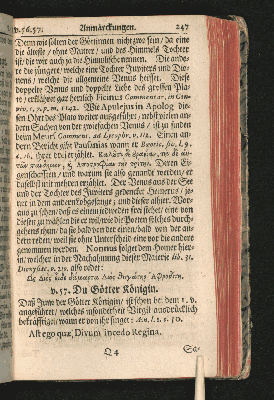 v.56.57. Anmärckungen. 247
Denn wie solten der Göttinnen nicht zwo seyn / da eine
die älteste / ohne Mutter / und des Himmels Tochter
ist / die wir auch ja die Himmlische nennen. Die ande-
re die jüngere / welche eine Tochter Jupiters und Dio-
nens / welche die allgemeine Venus heisset. Diese
doppelte Venus und doppelte Liebe des grossen Pla-
to / erkläret gar herrlich Ficinus Commentar. in
Wie Apulejus in Apolog die-
sen Ohrt des Plato weiter ausgeführet / nebst vielen an-
dern Sachen von der zwiefachen Venus / ist zu finden
beym Meurs. Comment. ad Lycophr. Einen an-
dern Bericht gibt Pausanias wann er Bœotic. lib. 9.
ihrer drei erzählet.
Deren Ei-
genschafften / und warum sie also genandt werden / er
daselbst mit mehren erzählet. Der Venus aus der See
und der Tochter des Jupiters gedencket Homerus / je-
ner in dem andern Lobgesange / und dieser allhier. Wor-
aus zu sehen / daß es einem iedweden frey stehet / eine von
diesen zu wählen die er wil / wie die Poeten solches durch-
gehens thun / da sie bald von der einen / bald von der an-
dern melden / weil sie ohne Unterscheid eine vor die andere
genommen werden. Nonnus folget dem Homer hier-
inne / welcher in der Nachahmung dieser Materie lib. 31.
Dionysiac. v. 210. also redet:
v. 57. Du Götter Königin.
Daß Juno der Götter Königin / ist schon bei dem 1. v.
angeführet / welches insonderheit Virgil ausdrücklich
bekräfftiget / wann er von ihr singet: Æn. l. 1. v. 50.
Ast ego quæ Divum incedo Regina.
Q 4 So-